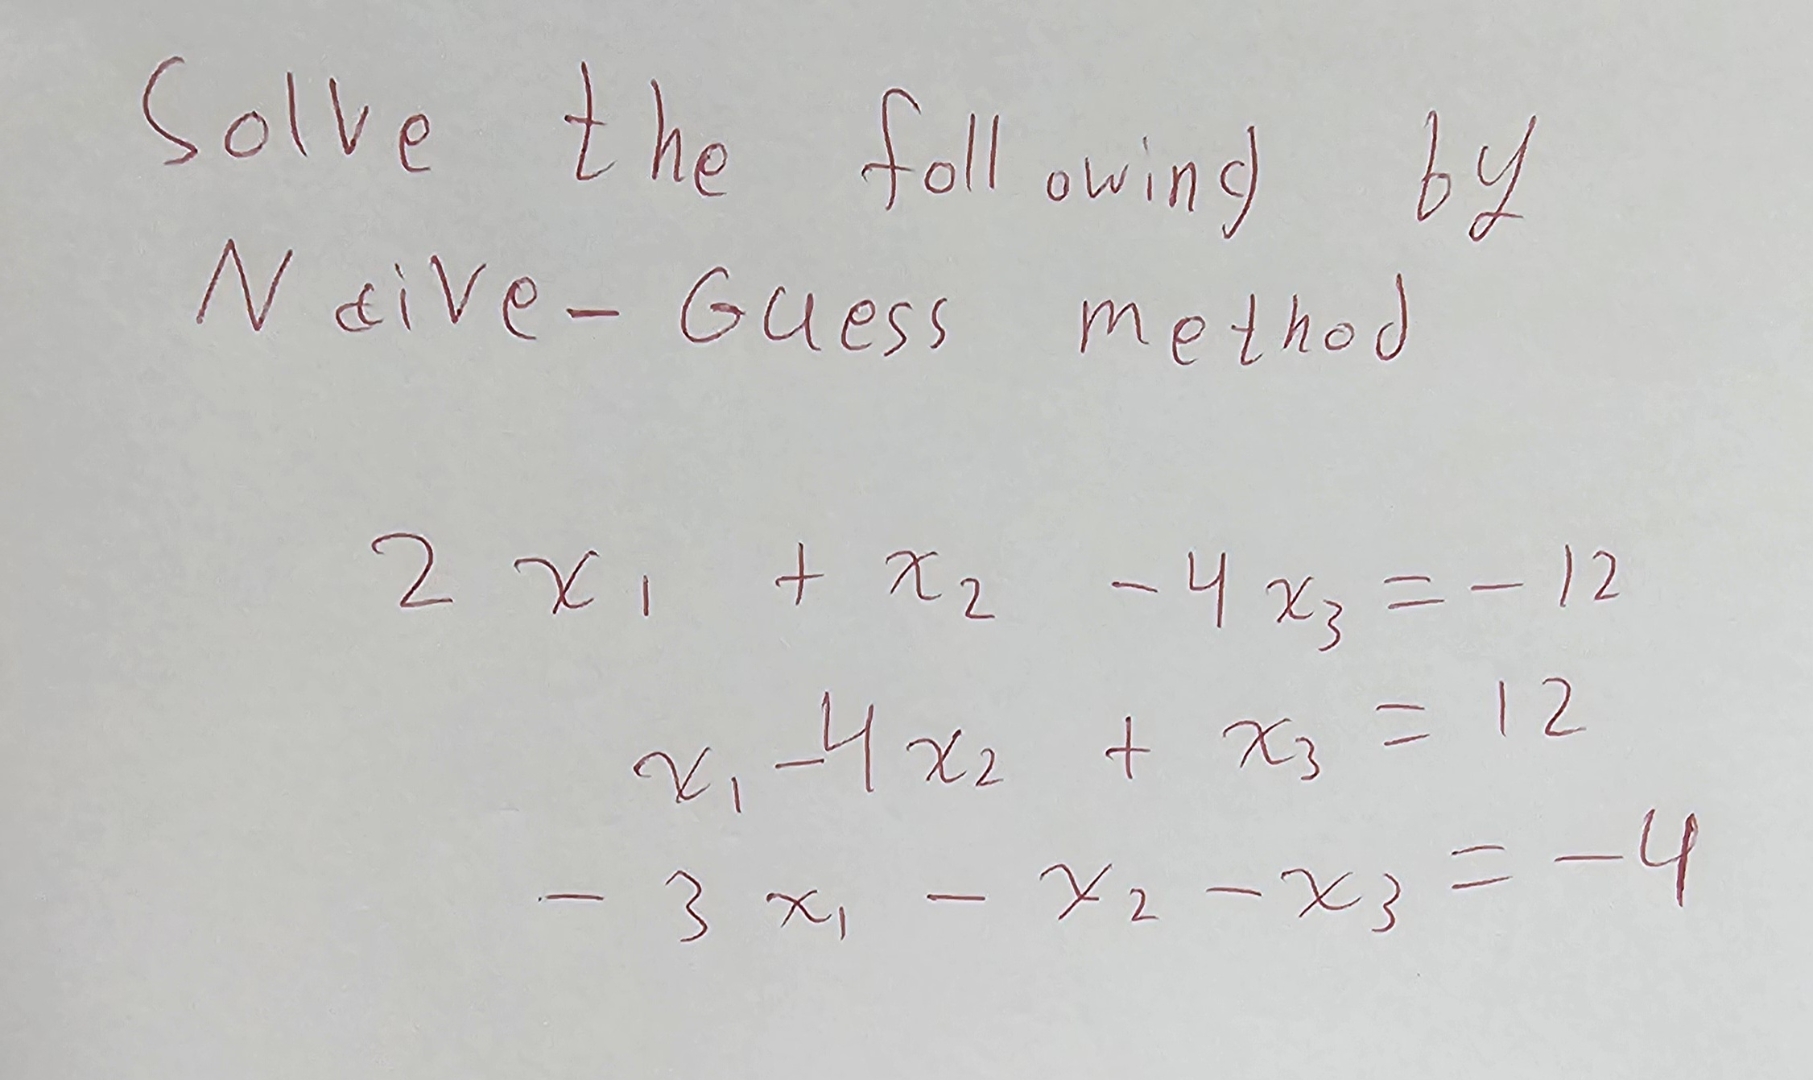 Solve the following by
Naive-Guess method
2x₁ + x₂ -4x₃ = -12
x₁ -4x₂ + x₃ = 12
-3x₁ - x₂ - x₃ = -4